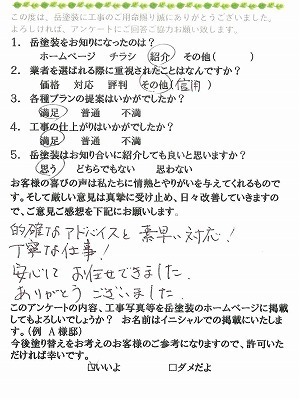 この度は、岳塗装に工事のご用命賜り誠にありがとうございました。
よろしければ、アンケートにご回答ご協力お願い致します。
1. 岳塗装をお知りになったのは？
ホームページ　チラシ　紹介　その他(　　　)
2. 業者を選ばれる際に重視されたことはなんですか？
価格　対応　評判　その他(信用)
3. 各種プランの提案はいかがでしたか？
満足　普通　不満
4. 工事の仕上がりはいかがでしたか？
満足　普通　不満
5. 岳塗装はお知り合いに紹介しても良いと思いますか？
思う　どちらでもない　思わない
お客様の喜びの声は私たちに情熱とやりがいを与えてくれるものです。
そして厳しい意見は真摯に受け止め、日々改善していきますので、
ご意見ご感想を下記にお願いします。
的確なアドバイスと素早い対応！
丁寧な仕事！
安心してお任せできました。
ありがとうございました
このアンケートの内容、工事写真等を岳塗装のホームページに掲載
してもよろしいでしょうか？　お名前はイニシャルでの掲載にいたしま
す。（例　A 様邸）
今後塗り替えをお考えのお客様のご参考になりますので、許可いた
だければ幸いです。
☑いいよ　□ダメだよ